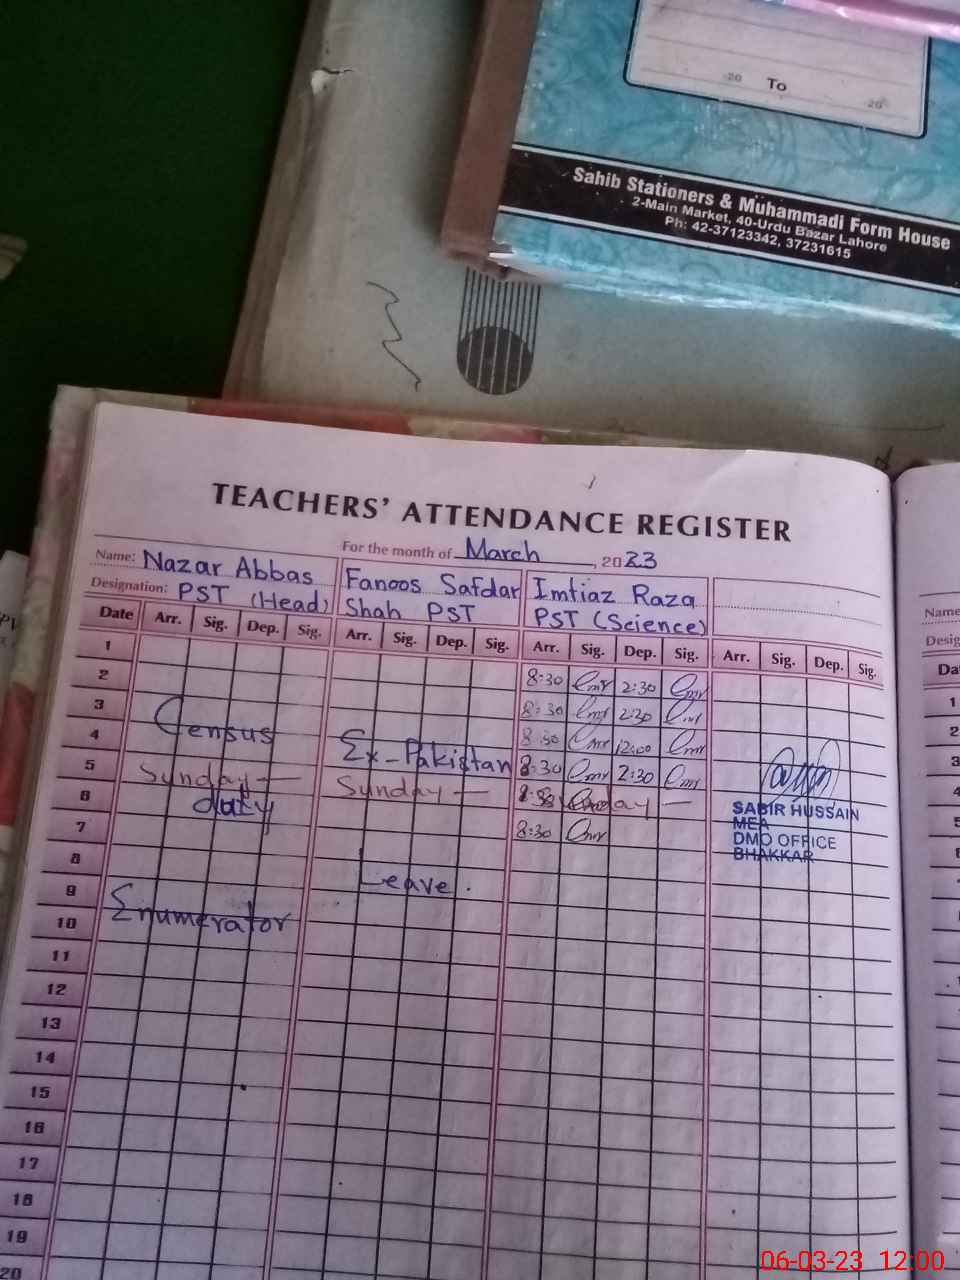 -20 To -20
Sahib Stationers & Muhammadi Form House
2-Main Market, 40-Urdu Bazar Lahore
Ph: 42-37123342, 37231615
TEACHERS' ATTENDANCE REGISTER
For the month of March, 2023
Name: Nazar Abbas Fanoos Safdar Imtiaz Raza
Designation: PST (Head) Shah PST PST (Science)
Date Arr. Sig. Dep. Sig. Arr. Sig. Dep. Sig. Arr. Sig. Dep. Sig. Arr. Sig. Dep. Sig.
1 8:30 2:30
2 8:30 2:30
3 Census 8:30 12:00
4 Ex-Pakistan 8:30 2:30
5 Sunday Sunday
duty
6 8:30
7
8 Leave.
9 Enumerator
10
11
12
13
14
15
16
17
18
19
20
SABIR HUSSAIN
MEA
DMO OFFICE
BHAKKAR
Name
Desig
Da
1
2
3
4
5
06-03-23 12:00